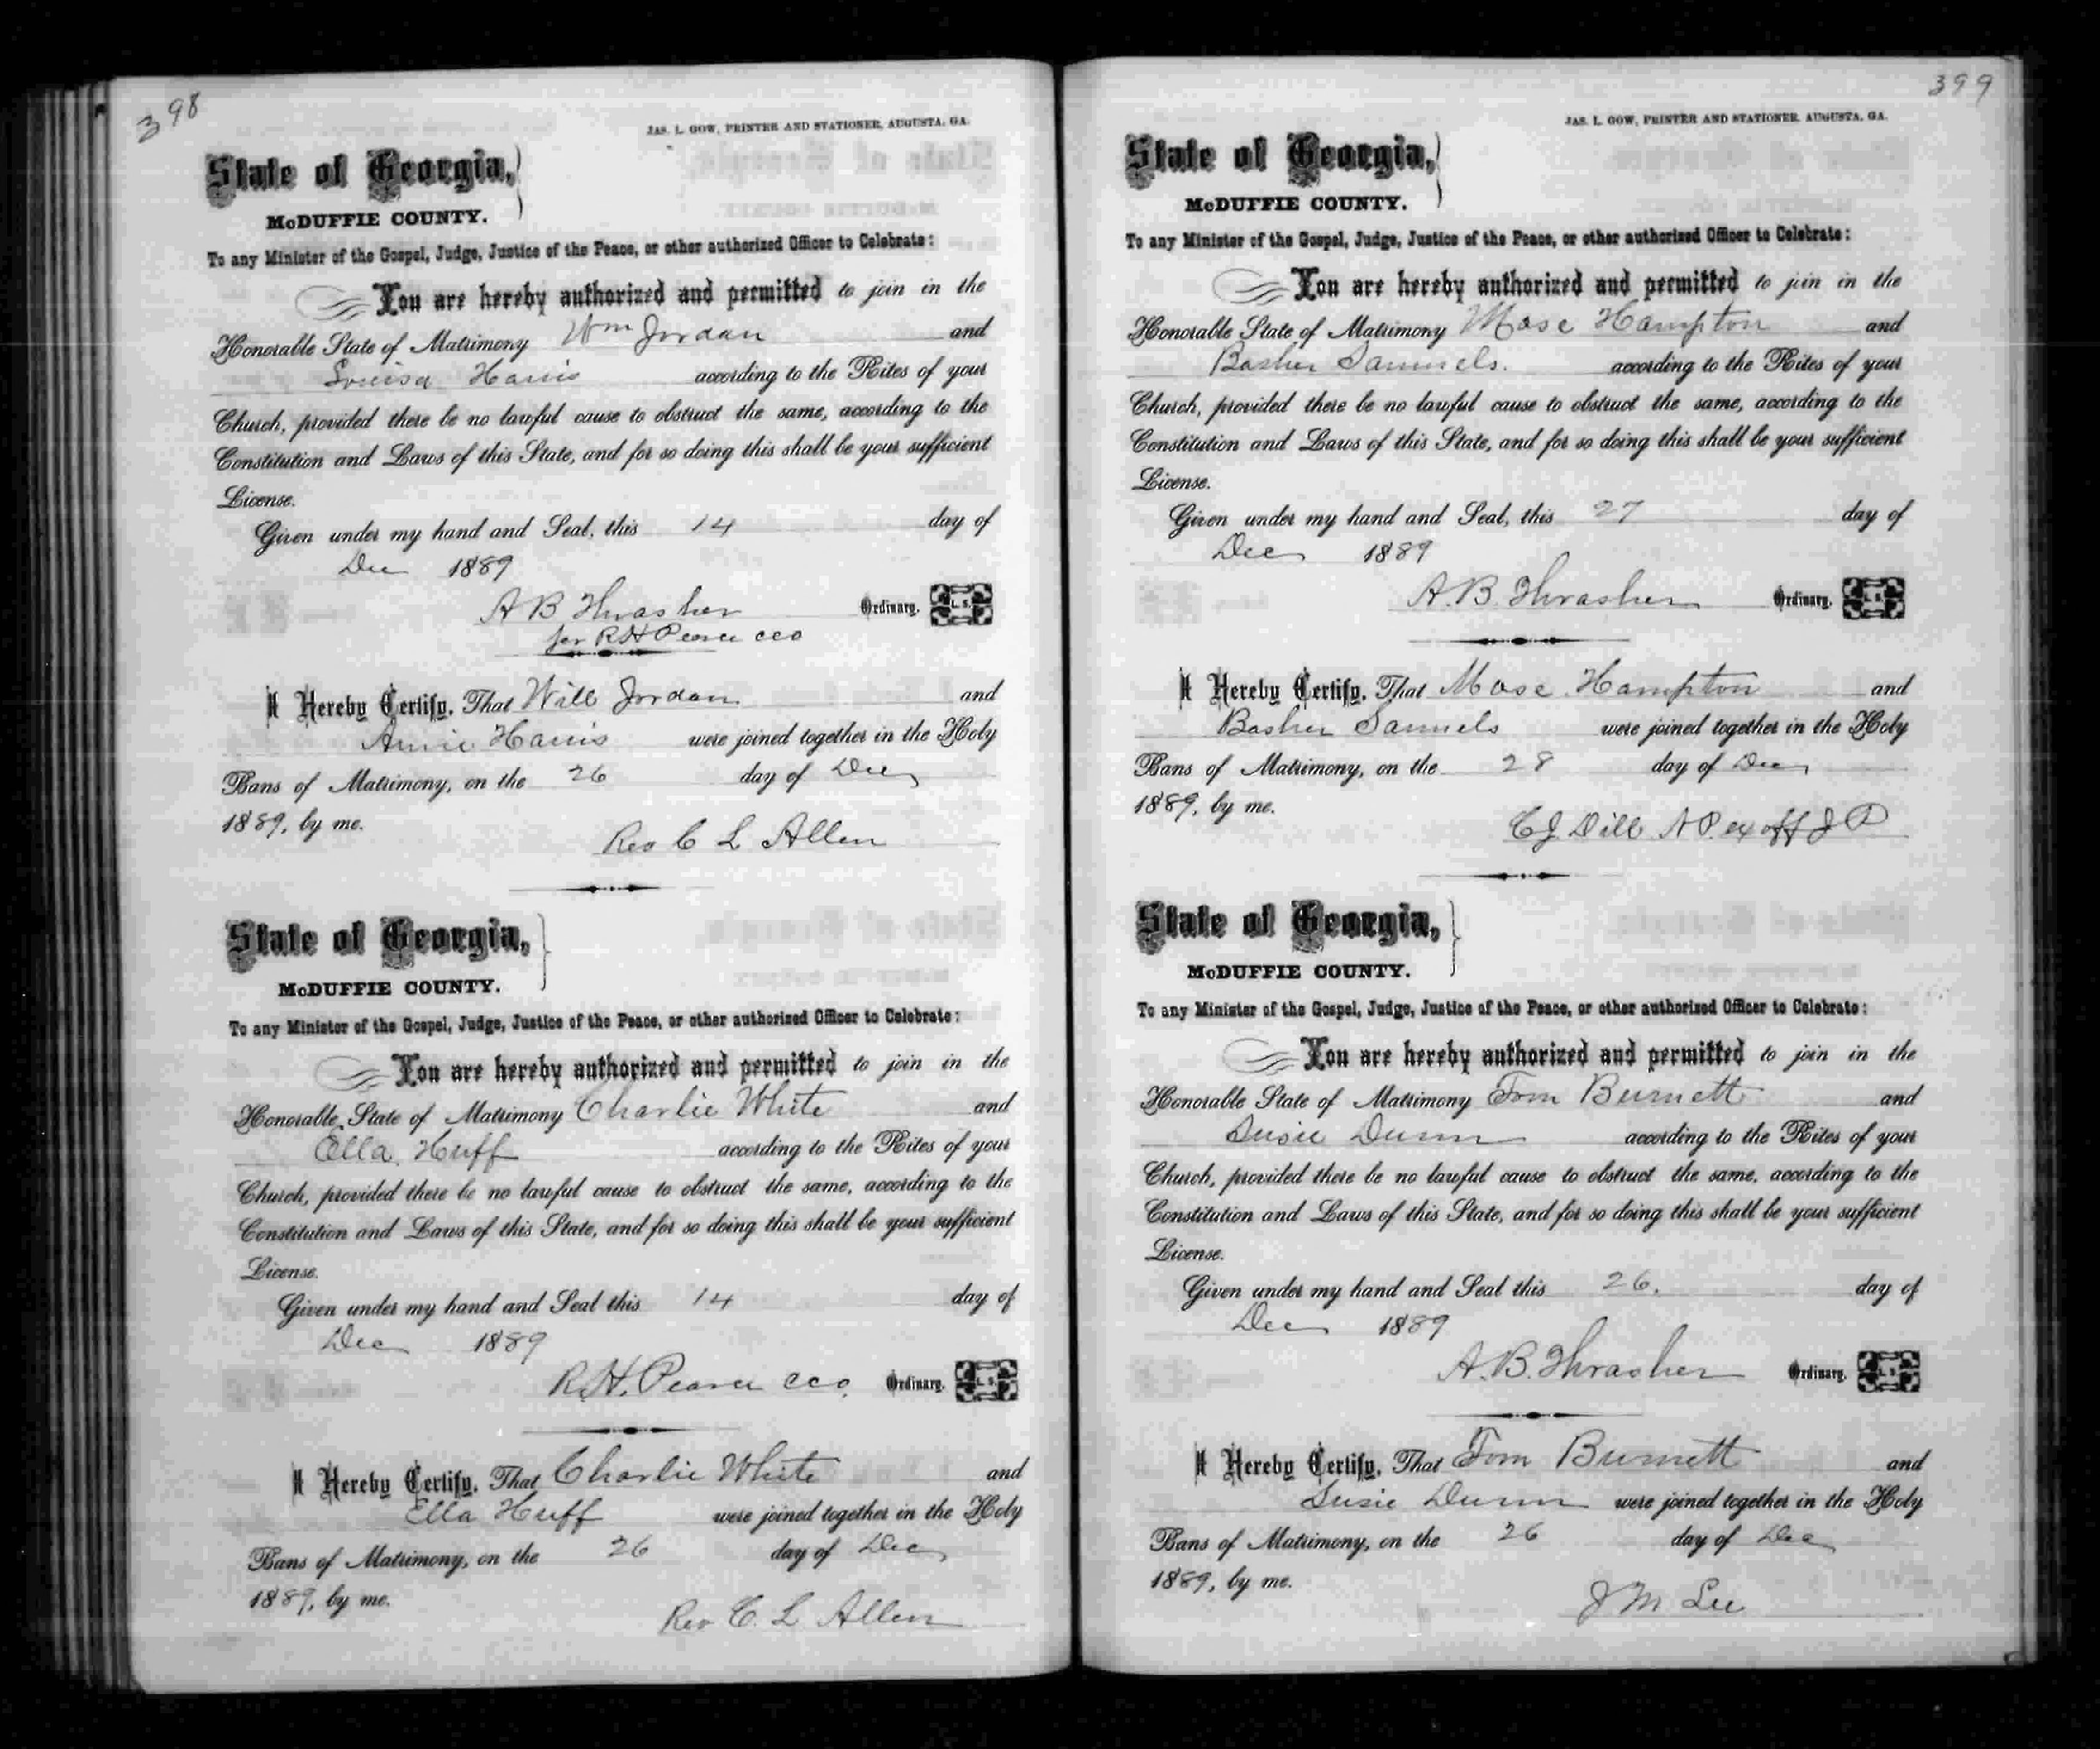 398
JAS. L. GOW, PRINTER AND STATIONER, AUGUSTA, GA.
State of Georgia,
McDUFFIE COUNTY.
To any Minister of the Gospel, Judge, Justice of the Peace, or other authorized Officer to Celebrate:
You are hereby authorized and permitted to join in the
Honorable State of Matrimony Wm Jordan and
Louisa Harris according to the Rites of your
Church, provided there be no lawful cause to obstruct the same, according to the
Constitution and Laws of this State, and for so doing this shall be your sufficient
License.
Given under my hand and Seal, this 14 day of
Dec 1889
A B Thrasher Ordinary. L. S.
for R H Pearce cco
I Hereby Certify, That Will Jordan and
Annie Harris were joined together in the Holy
Bans of Matrimony, on the 26 day of Dec
1889, by me.
Rev C L Allen
State of Georgia,
McDUFFIE COUNTY.
To any Minister of the Gospel, Judge, Justice of the Peace, or other authorized Officer to Celebrate:
You are hereby authorized and permitted to join in the
Honorable State of Matrimony Charlie White and
Ella Huff according to the Rites of your
Church, provided there be no lawful cause to obstruct the same, according to the
Constitution and Laws of this State, and for so doing this shall be your sufficient
License.
Given under my hand and Seal this 14 day of
Dec 1889
R. H. Pearce cco. Ordinary. L. S.
I Hereby Certify, That Charlie White and
Ella Huff were joined together in the Holy
Bans of Matrimony, on the 26 day of Dec
1889, by me.
Rev C. L Allen
399
JAS. L. GOW, PRINTER AND STATIONER, AUGUSTA, GA.
State of Georgia,
McDUFFIE COUNTY.
To any Minister of the Gospel, Judge, Justice of the Peace, or other authorized Officer to Celebrate:
You are hereby authorized and permitted to join in the
Honorable State of Matrimony Mose Hampton and
Basher Samuels. according to the Rites of your
Church, provided there be no lawful cause to obstruct the same, according to the
Constitution and Laws of this State, and for so doing this shall be your sufficient
License.
Given under my hand and Seal, this 27 day of
Dec 1889
A. B. Thrasher Ordinary. L. S.
I Hereby Certify, That Mose Hampton and
Basher Samuels were joined together in the Holy
Bans of Matrimony, on the 28 day of Dec
1889, by me.
C J Dill N P. ex off J P
State of Georgia,
McDUFFIE COUNTY.
To any Minister of the Gospel, Judge, Justice of the Peace, or other authorized Officer to Celebrate:
You are hereby authorized and permitted to join in the
Honorable State of Matrimony Tom Burnett and
Susie Dunn according to the Rites of your
Church, provided there be no lawful cause to obstruct the same, according to the
Constitution and Laws of this State, and for so doing this shall be your sufficient
License.
Given under my hand and Seal this 26. day of
Dec 1889
A. B. Thrasher Ordinary. L. S.
I Hereby Certify, That Tom Burnett and
Susie Dunn were joined together in the Holy
Bans of Matrimony, on the 26 day of Dec
1889, by me.
J M Lee